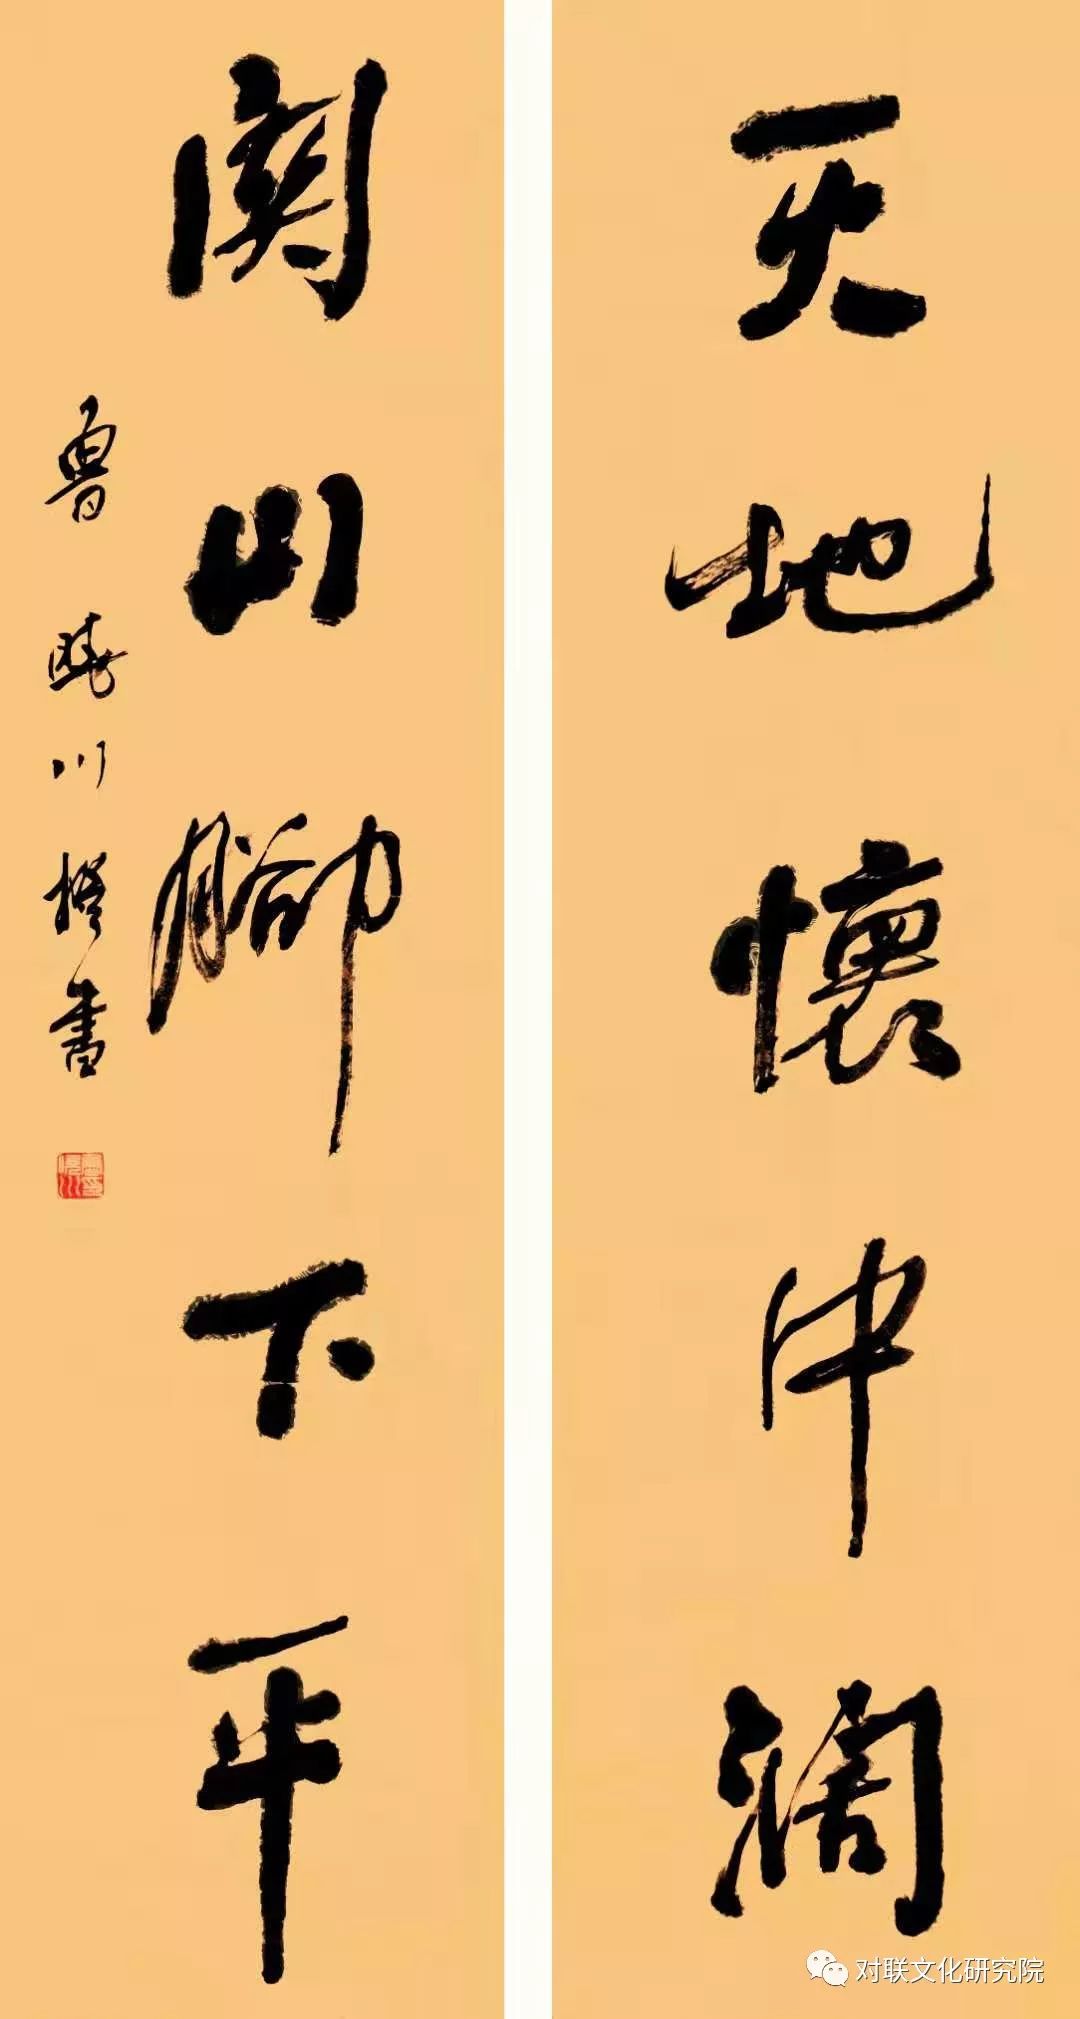 天地懷中闊
関山腳下平
魯曉川撰書
对联文化研究院